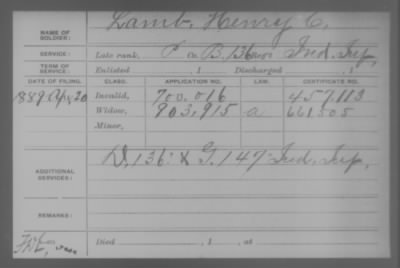 NAME OF SOLDIER: Lamb, Henry C.
SERVICE: Late rank, P Co. B, 136 Reg't Ind. Inf,
TERM OF SERVICE: Enlisted , 1 Discharged , 1
DATE OF FILING. CLASS. APPLICATION NO. LAW. CERTIFICATE NO.
1889 Apr 20 Invalid, 700.016 457.113
Widow, 903,915 a 661505
Minor,
ADDITIONAL SERVICES: D, 136 & G. 147 Ind. Inf,
REMARKS:
Died , 1 , at